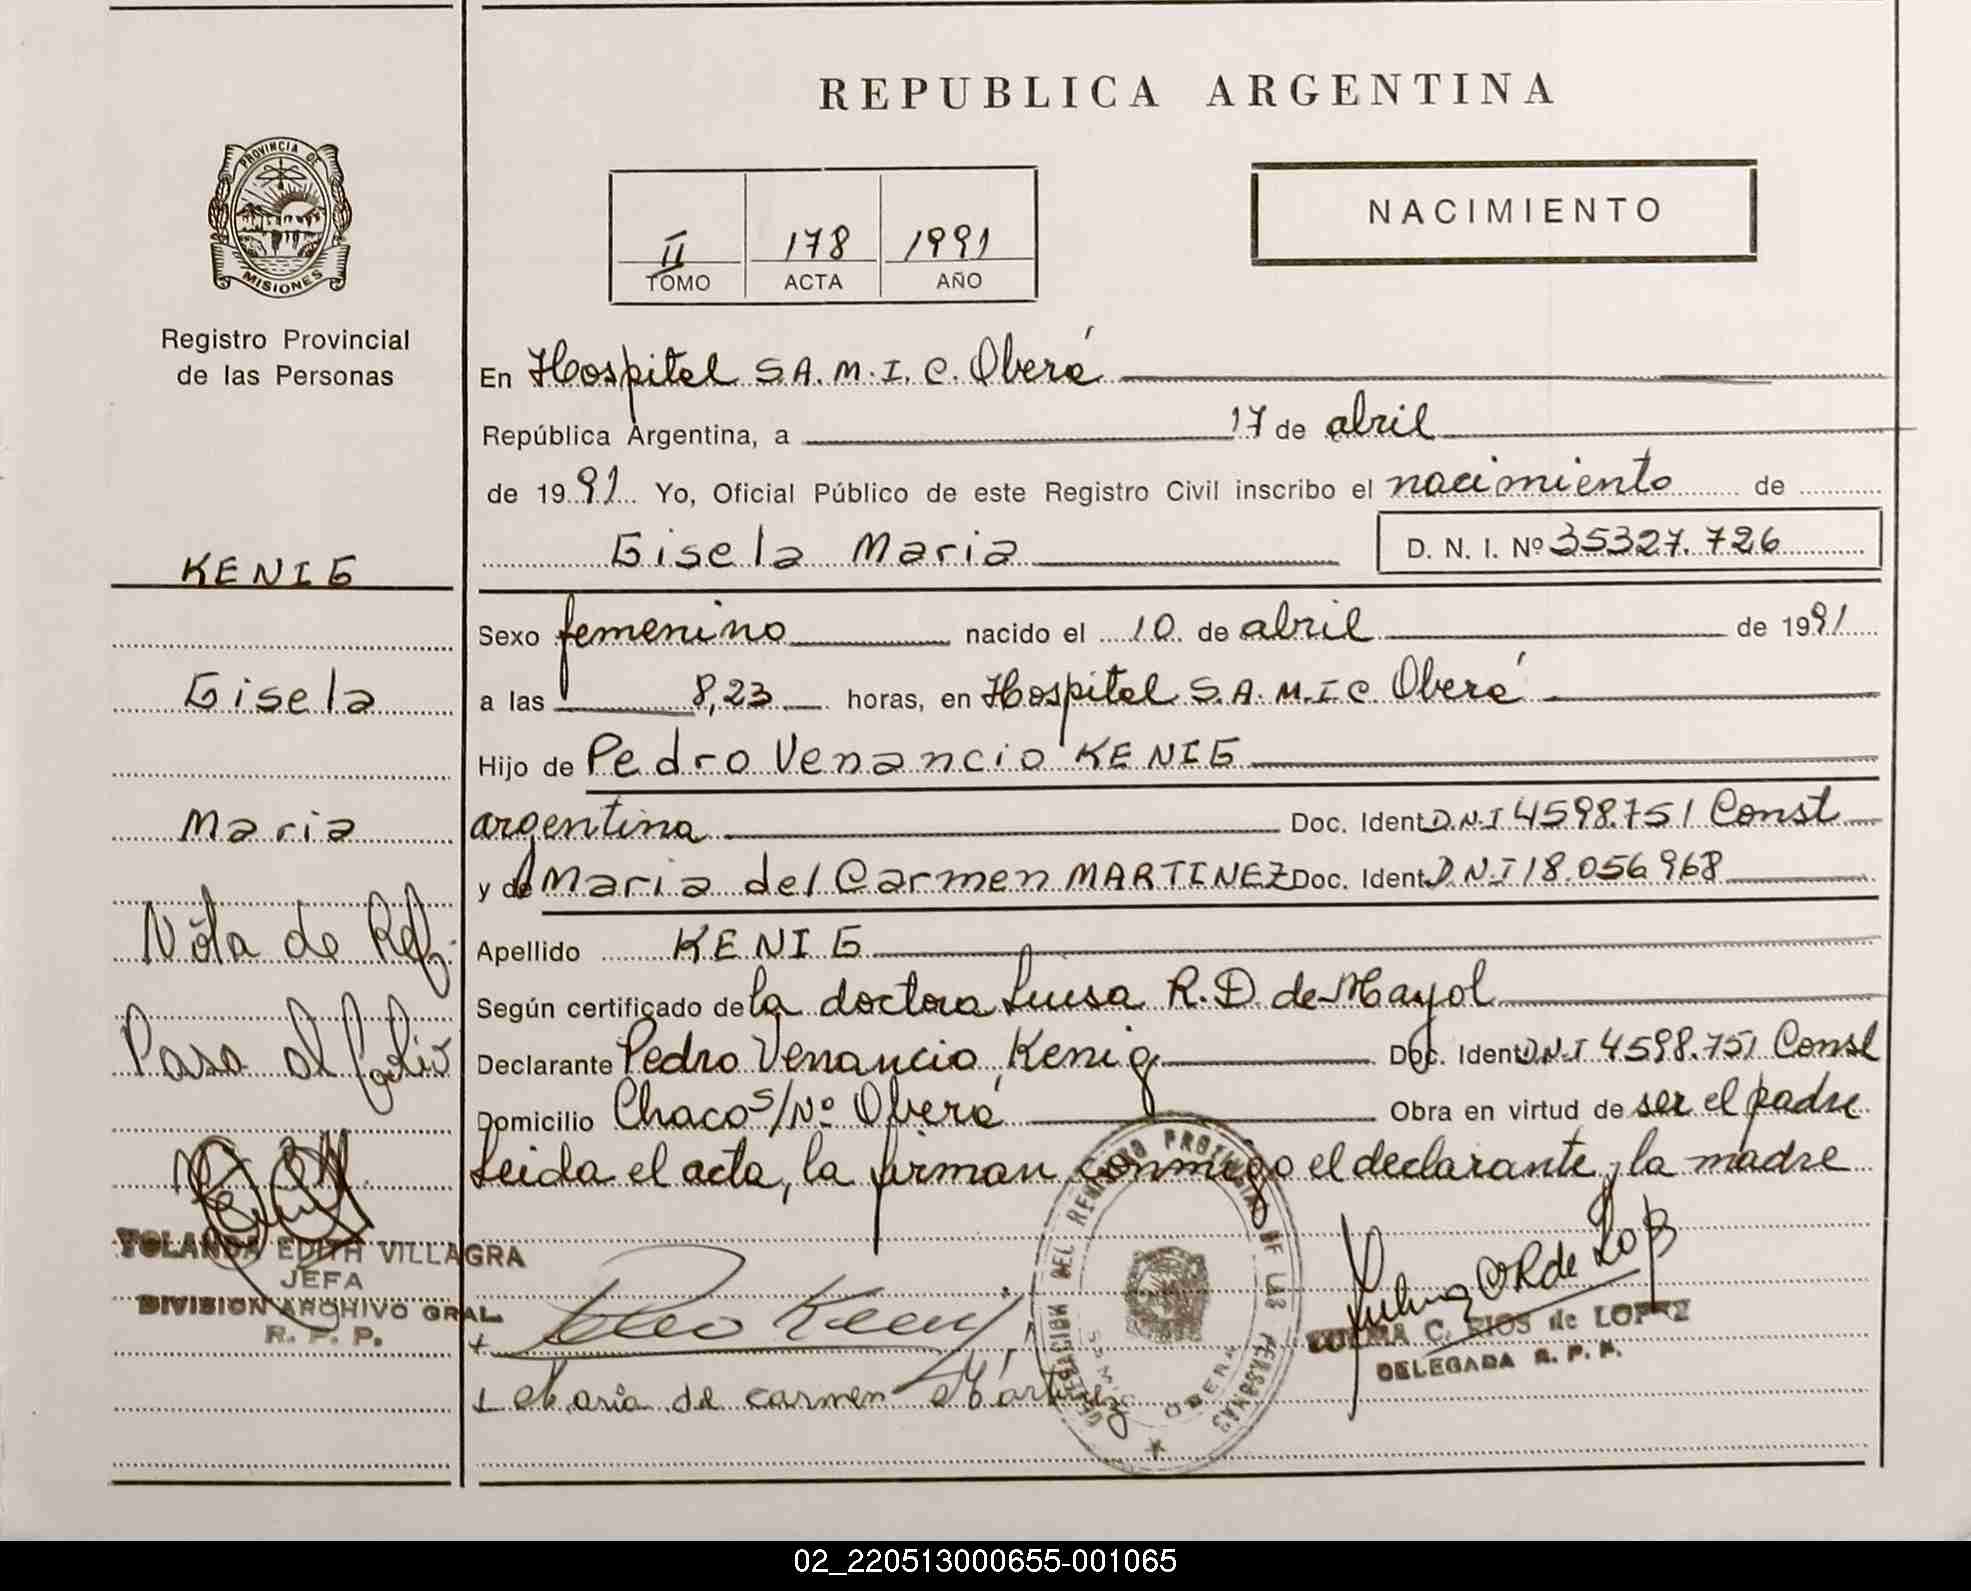 REPUBLICA ARGENTINA
PROVINCIA DE
MISIONES
Registro Provincial
de las Personas
II 178 1991
TOMO ACTA AÑO
NACIMIENTO
En Hospital S.A.M.I.C. Oberá
República Argentina, a 17 de abril
de 1991 Yo, Oficial Público de este Registro Civil inscribo el nacimiento de
Gisela Maria D. N. I. Nº 35327.726
KENIG
Gisela
Maria
Nota de Ref.
Pasa al folio
YOLANDA EDITH VILLAGRA
JEFA
DIVISION ARCHIVO GRAL.
R. P. P.
Sexo femenino nacido el 10 de abril de 1991
a las 8,23 horas, en Hospital S.A.M.I.C. Oberá
Hijo de Pedro Venancio KENIG
argentina Doc. Ident. D.N.I 4598.751 Const
y de Maria del Carmen MARTINEZ Doc. Ident. D.N.I 18.056.968
Apellido KENIG
Según certificado de la doctora Luisa R.D. de Mayol
Declarante Pedro Venancio Kenig Doc. Ident. D.N.I 4598.751 Const
Domicilio Chaco s/Nº Oberá Obra en virtud de ser el padre
Leida el acta, la firman conmigo el declarante y la madre
DELEGACION DEL REGISTRO PROVINCIAL DE LAS PERSONAS
OBERA
ZULMA C. RIOS de LOPEZ
DELEGADA R. P. P.
Maria de carmen Martinez
02_220513000655-001065